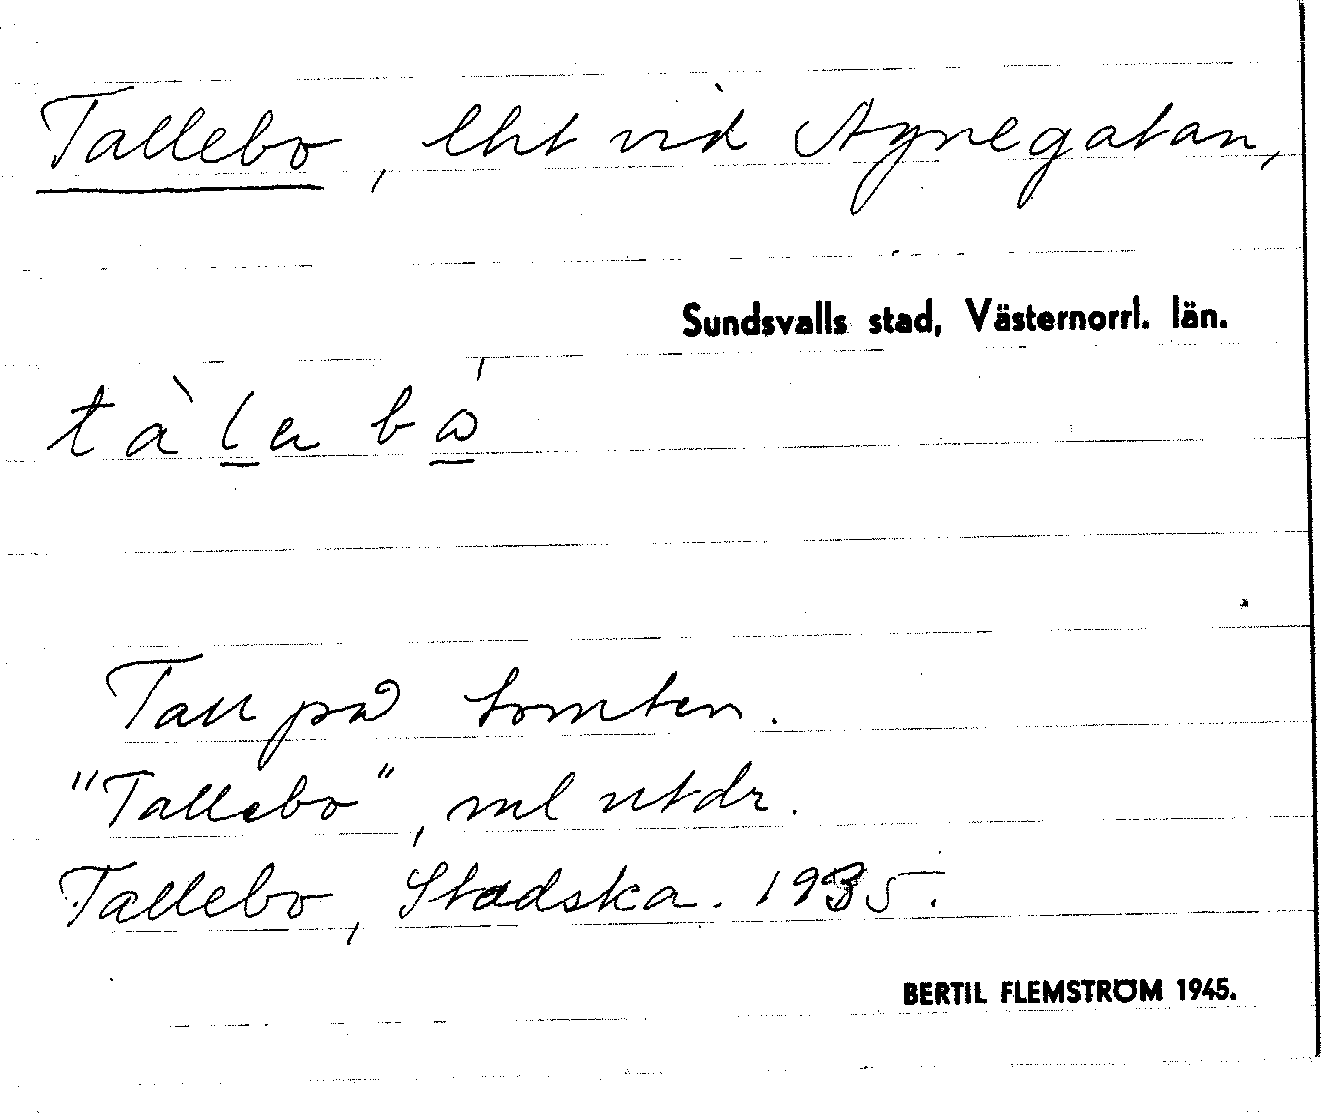 Tallebo, lht vid Agnegatan,
Sundsvalls stad, Västernorrl. län.
tàlebώ̲
Tall på tomten.
"Tallebo", ml utdr.
Tallebo, Stadska. 1935.
BERTIL FLEMSTRÖM 1945.